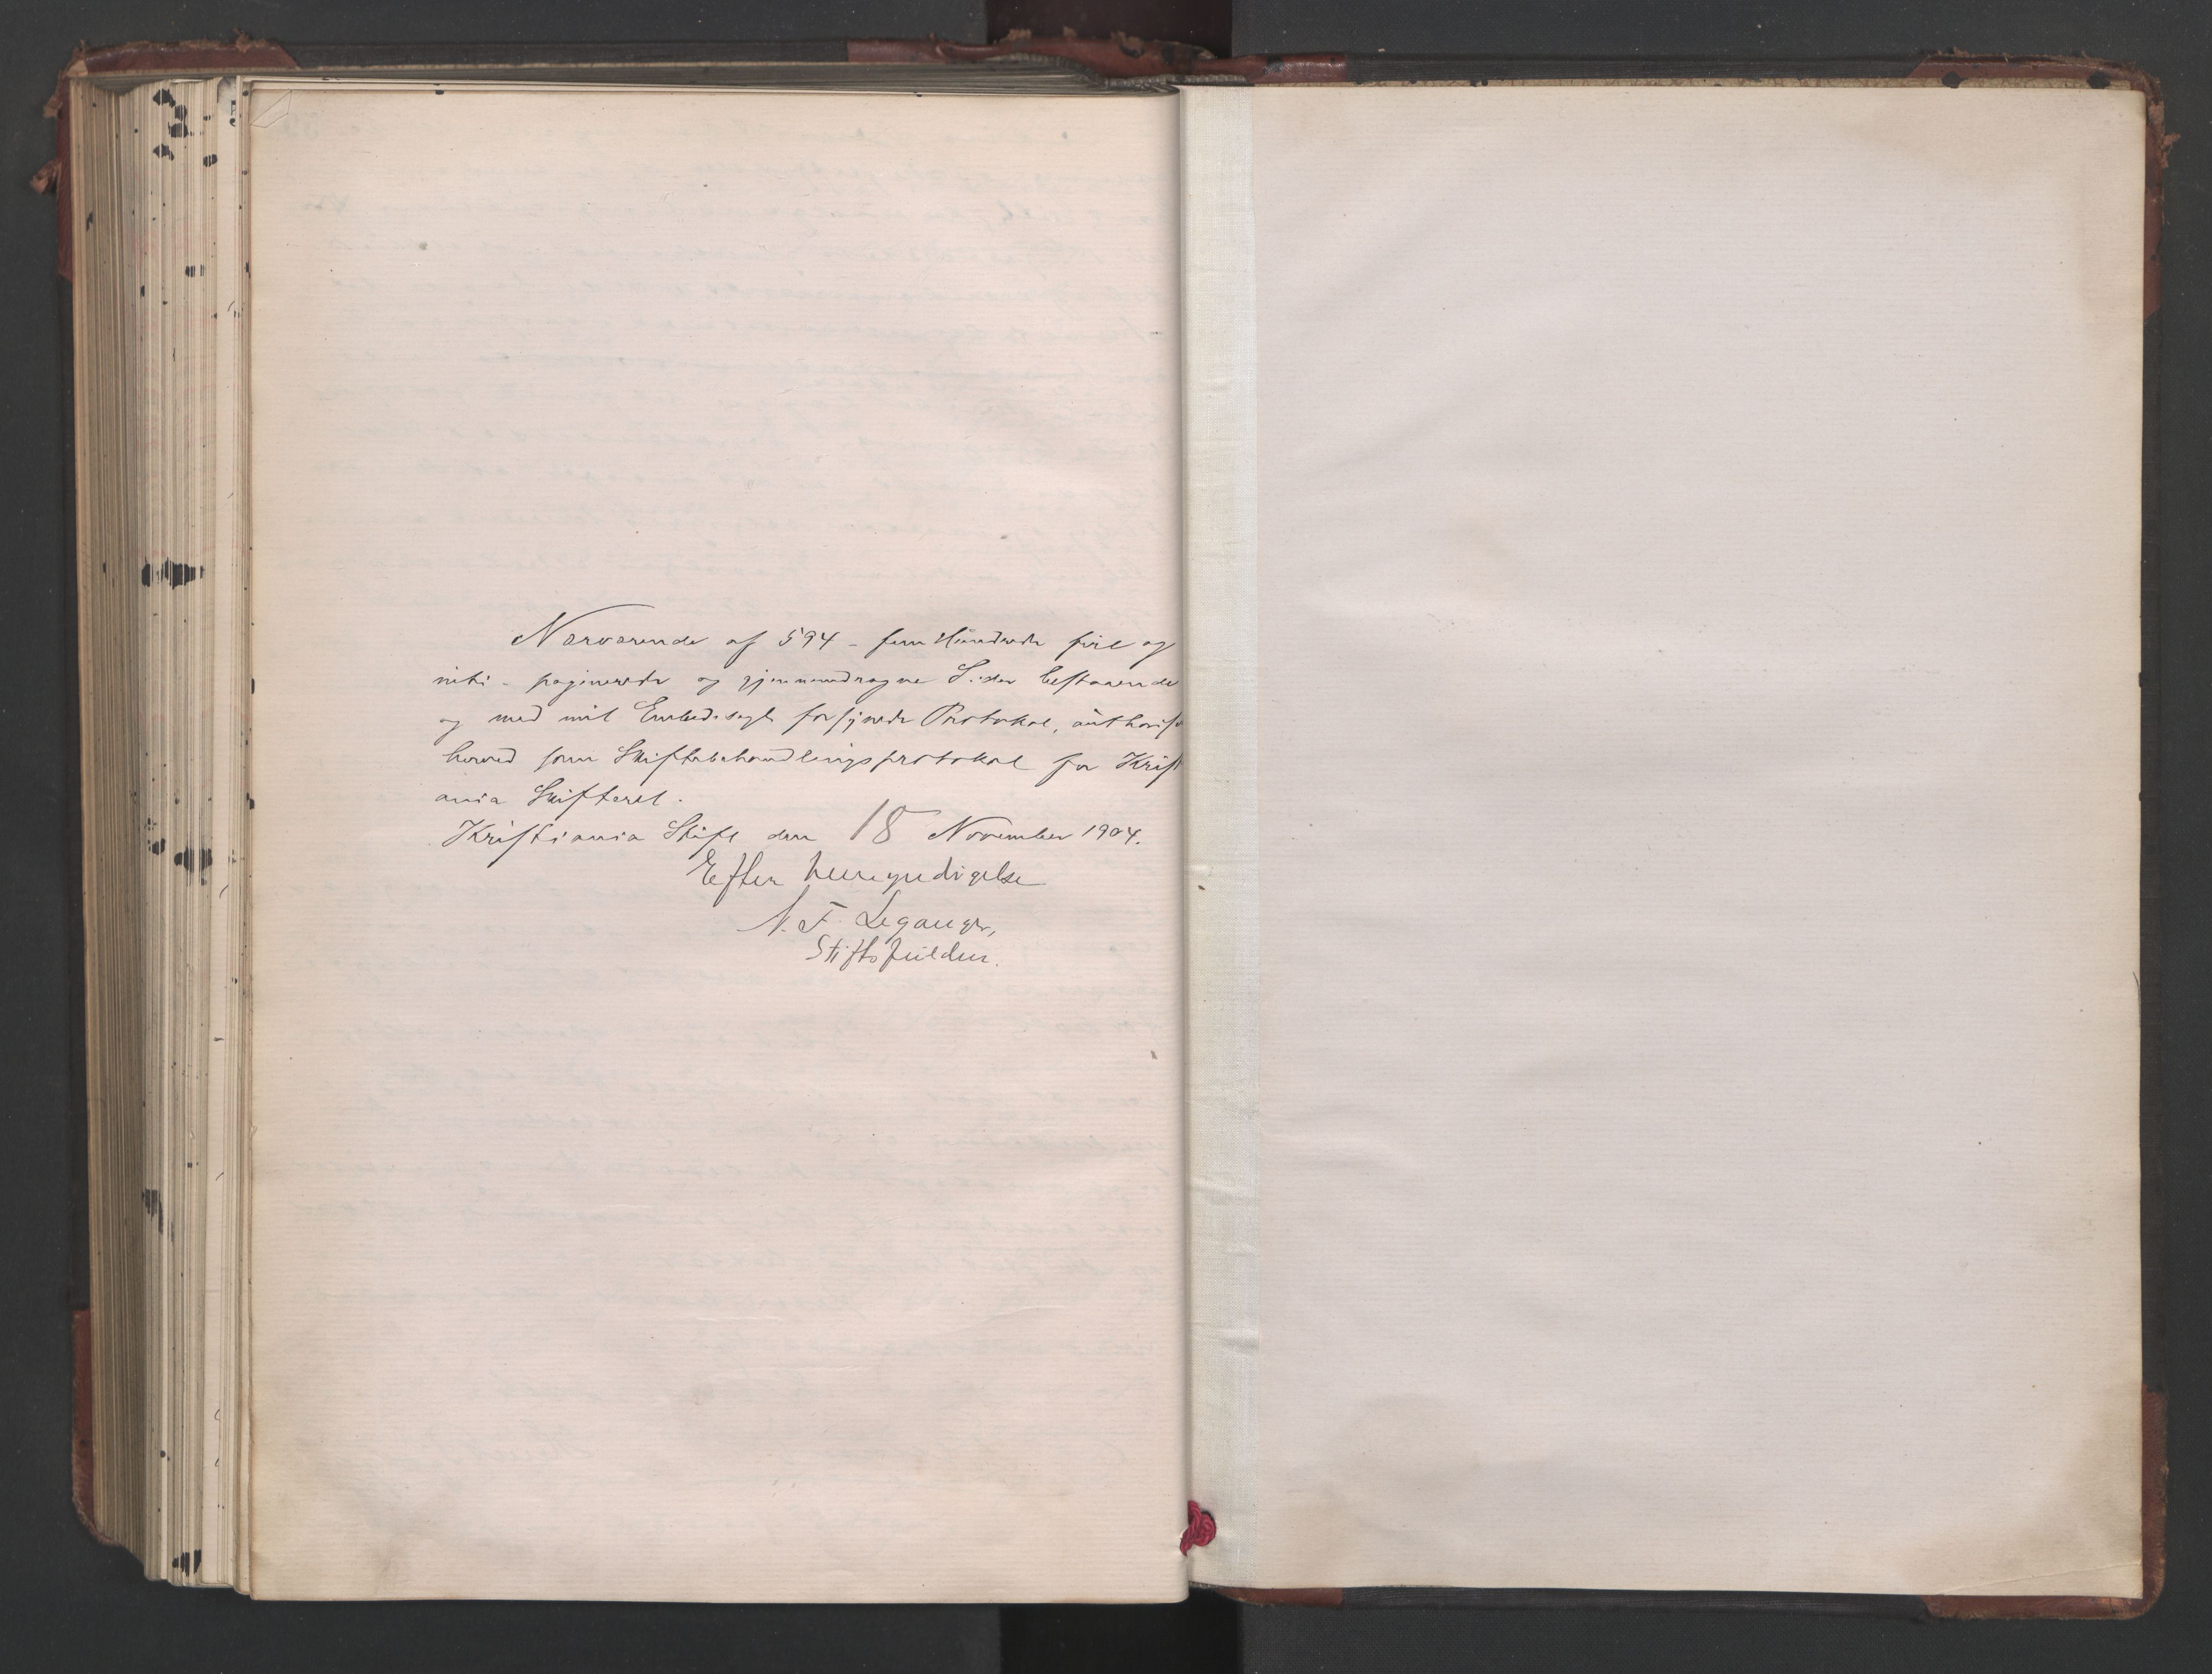 Nærværende af 594 - fem Hundrede fire og
niti - paginerede og gjennemdragne Sider bestaaende
og med mit Embedssegl forsynede Protokol, authoris
herved som Skiftebehandlingsprotokol for Krist
ania Skifteret.
Kristiania Stift den 18 November 1904.
Efter bemyndigelse
N. F. Leganger,
Stiftsfuldm.